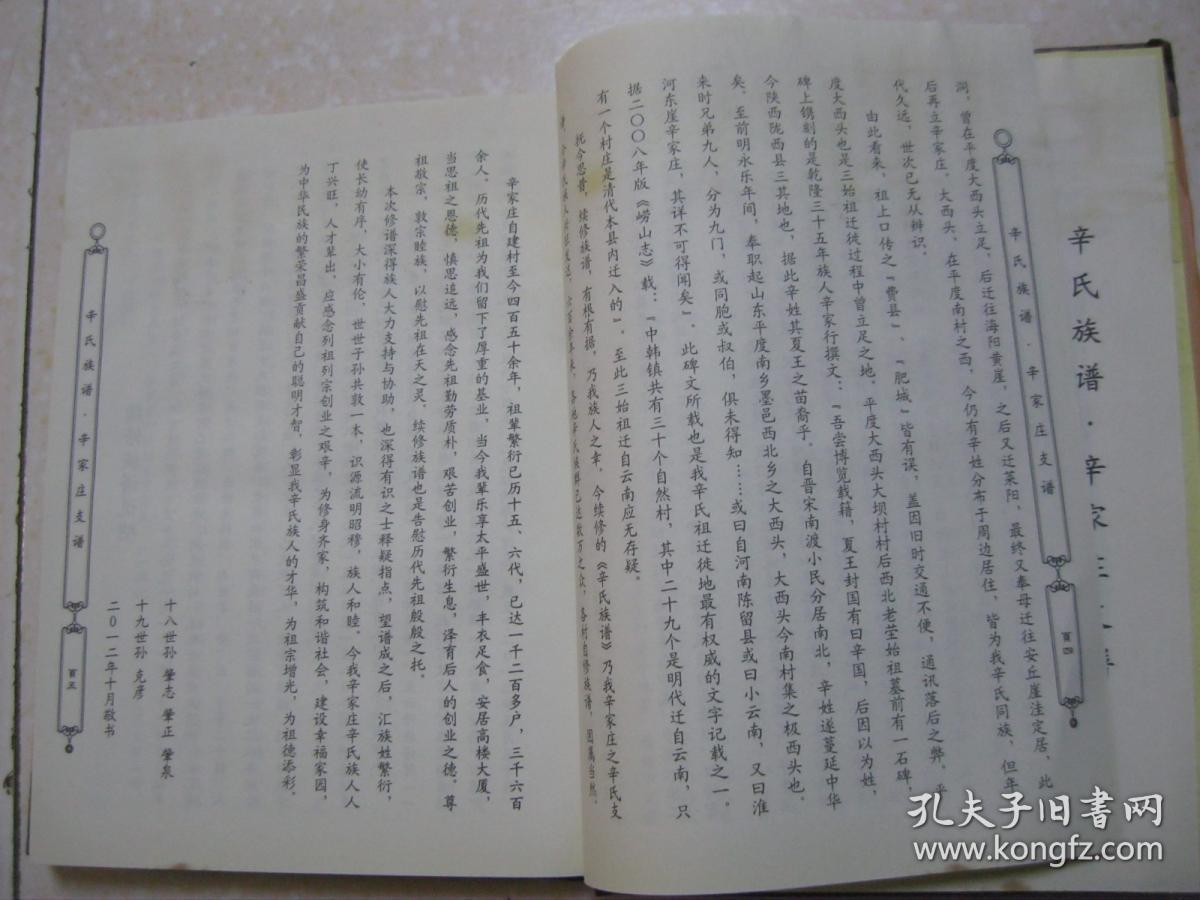 辛氏族谱·辛家庄支谱
辛氏族谱·辛家庄支谱
百四
涧，曾在平度大西头立足，后迁往海阳黄崖，之后又迁莱阳，最终又奉母迁往安丘崖洼定居，此
后再立辛家庄、大西头，在平度南村之西，今仍有辛姓分布于周边居住，皆为我辛氏同族，但年
代久远，世次已无从辨识。
由此看来，祖上口传之“费县”、“肥城”皆有误，盖因旧时交通不便，通讯落后之弊，平
度大西头也是三始祖迁徙过程中曾立足之地。平度大西头大坝村村后西北老茔始祖墓前有一石碑，
碑上镌刻的是乾隆三十五年族人辛家行撰文：“吾尝博览载籍，夏王封国有曰辛国，后因以为姓，
今陕西陇西县三其地也，据此辛姓其夏王之苗裔乎。自晋宋南渡小民分居南北，辛姓遂蔓延中华
矣。至前明永乐年间，奉职起山东平度南乡墨邑西北乡之大西头，大西头今南村集之极西头也。
来时兄弟九人，分为九门，或同胞或叔伯，俱未得知……或曰自河南陈留县或曰小云南，又曰淮
河东崖辛家庄，其详不可得闻矣”。此碑文所载也是我辛氏祖迁徙地最有权威的文字记载之一。
据二〇〇八年版《崂山志》载：“中韩镇共有三十个自然村，其中二十九个是明代迁自云南，只
有一个村庄是清代本县内迁入的”。至此三始祖迁自云南应无存疑。
抚今思昔，续修族谱，有根有据，乃我族人之幸。今续修的《辛氏族谱》乃我辛家庄之辛氏支
各村自修族谱，因属当然。
辛家庄自建村至今四百五十余年，祖辈繁衍已历十五、六代，已达一千二百多户，三千六百
余人。历代先祖为我们留下了厚重的基业，当今我辈乐享太平盛世，丰衣足食，安居高楼大厦，
当思祖之恩德，慎思追远，感念先祖勤劳质朴，艰苦创业，繁衍生息，泽育后人的创业之德。尊
祖敬宗，敦宗睦族，以慰先祖在天之灵。续修族谱也是告慰历代先祖殷殷之托。
本次修谱深得族人大力支持与协助，也深得有识之士释疑指点，望谱成之后，汇族姓繁衍，
使长幼有序，大小有伦，世世子孙共敦一本，识源流明昭穆，族人和睦。今我辛家庄辛氏族人人
丁兴旺，人才辈出，应感念列祖列宗创业之艰辛，为修身齐家，构筑和谐社会，建设幸福家园，
为中华民族的繁荣昌盛贡献自己的聪明才智，彰显我辛氏族人的才华，为祖宗增光，为祖德添彩。
十八世孙 肇志 肇正 肇泉
十九世孙 克彦
二〇一二年十月敬书
辛氏族谱·辛家庄支谱
百五
孔夫子旧书网
www.kongfz.com